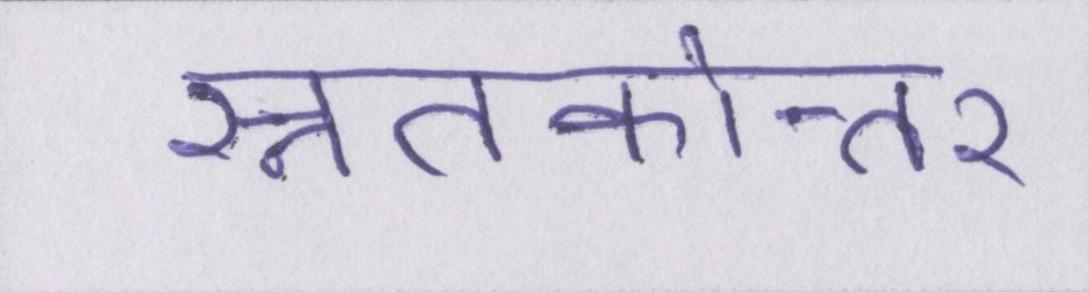 स्नतकोत्तर